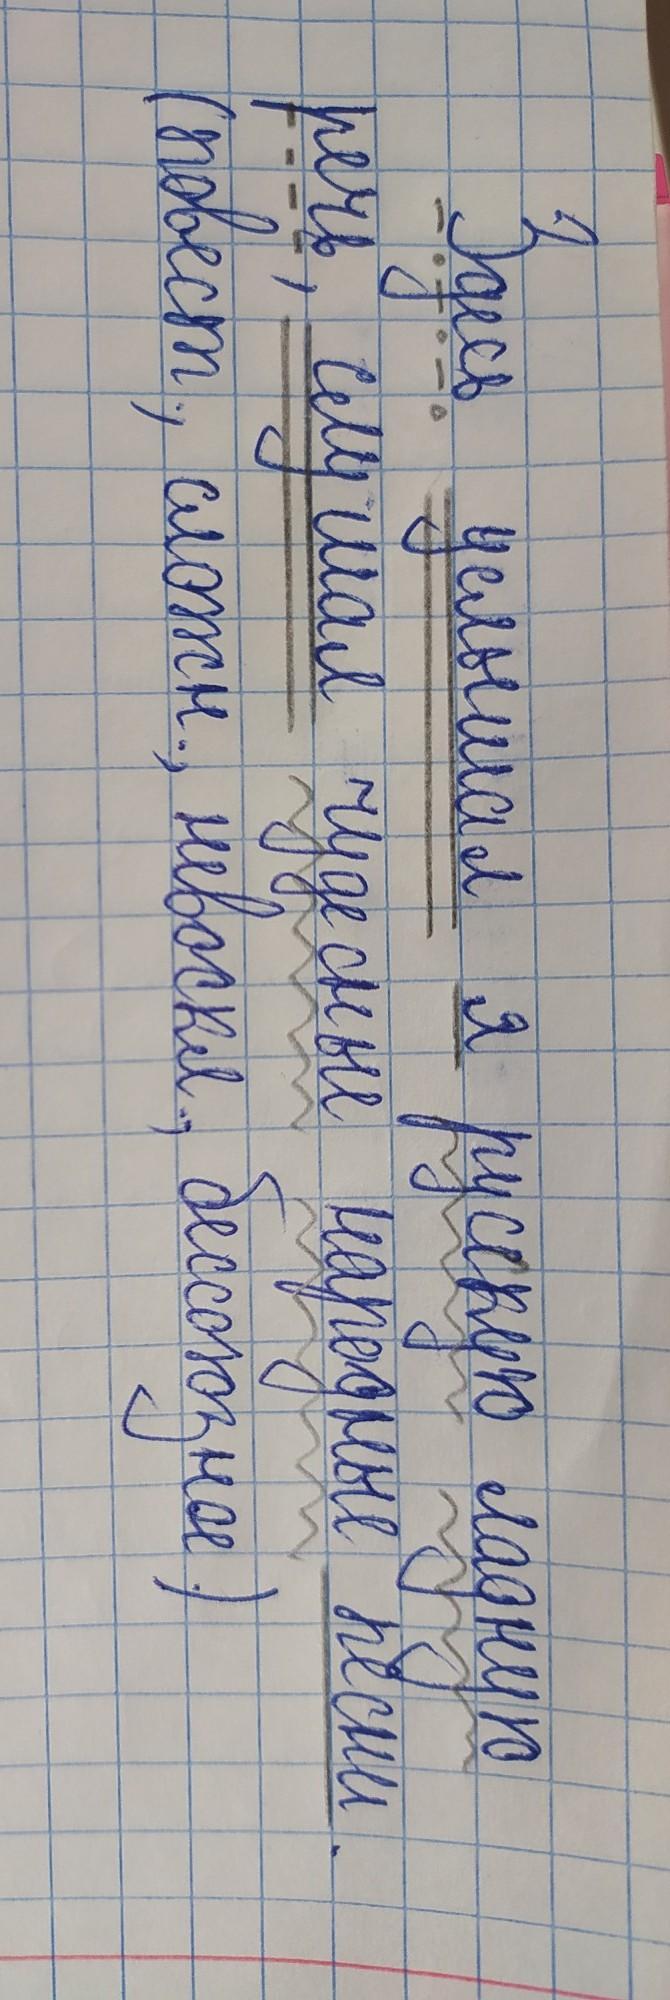 Здесь услышал я рускую ладную
речь, слушал чудесные народные песни.
(повест., сложн., невоскл., бессоюзное)